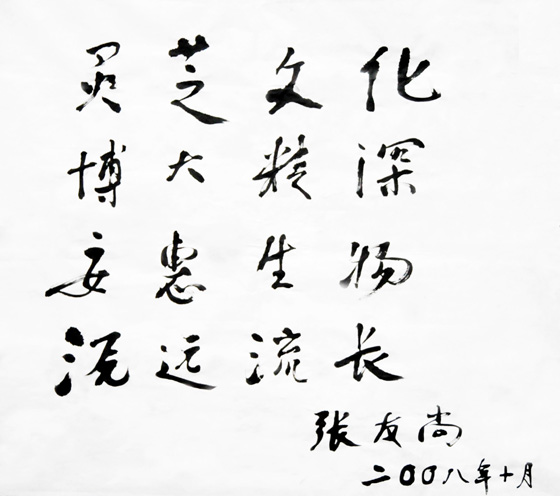 灵芝文化
博大精深
安惠生物
源远流长
张友尚
二00八年十月